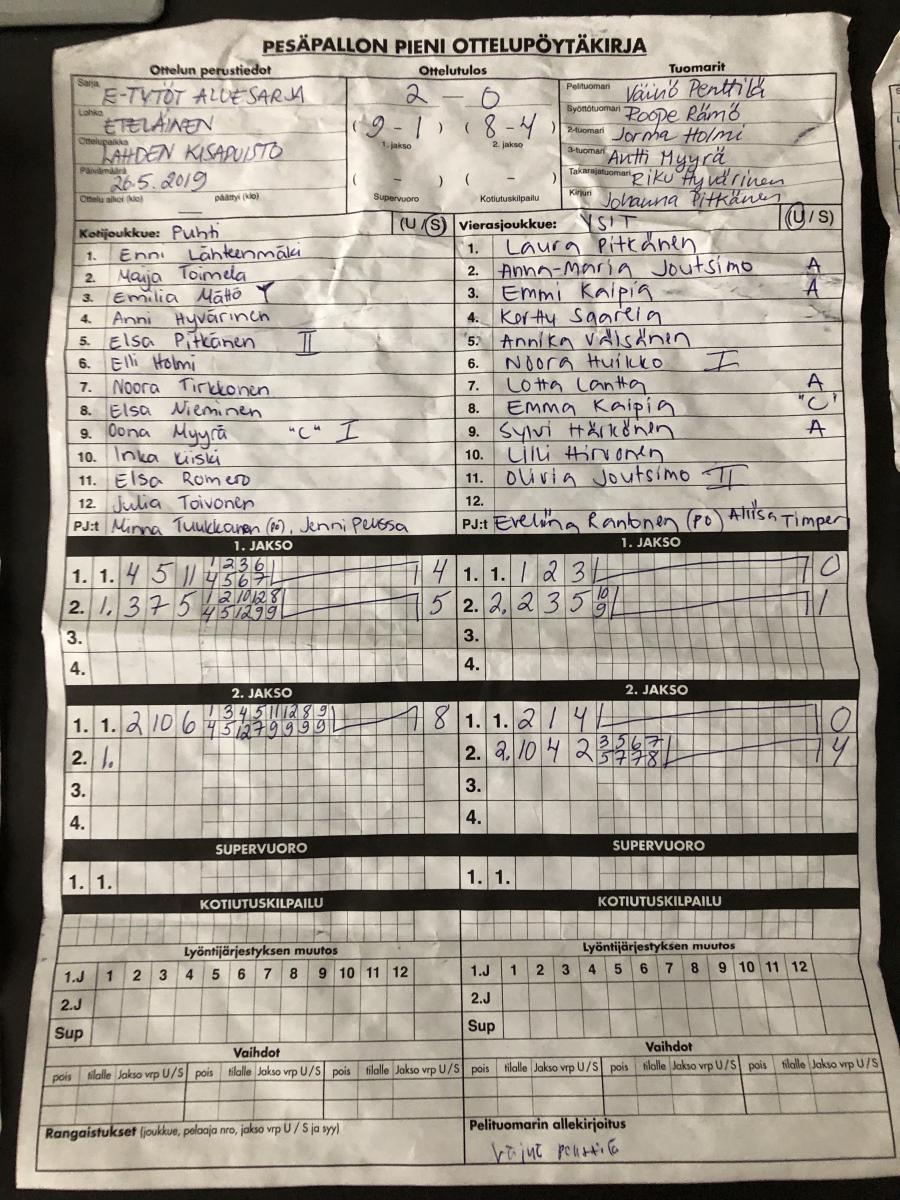 PESÄPALLON PIENI OTTELUPÖYTÄKIRJA
Ottelun perustiedot
Sarja E-TYTÖT ALUESARJA
Lohko ETELÄINEN
Ottelupaikka LAHDEN KISAPUISTO
Päivämäärä 26.5. 2019
Ottelu alkoi (klo) — päättyi (klo)
Ottelutulos
2 — 0
(9 - 1) (8 - 4)
1. jakso 2. jakso
( - ) ( - )
Supervuoro Kotiutuskilpailu
Tuomarit
Pelituomari Väinö Penttilä
Syöttötuomari Roope Rämö
2-tuomari Jorma Holmi
3-tuomari Antti Myyrä
Takarajatuomari Riku Hyvärinen
Kirjuri Johanna Pitkänen
Kotijoukkue: Puhti (U/S)
1. Enni Lähteenmäki
2. Maija Toimela
3. Emilia Mättö
4. Anni Hyvärinen
5. Elsa Pitkänen II
6. Elli Holmi
7. Noora Tirkkonen
8. Elsa Nieminen
9. Oona Myyrä "C" I
10. Inka Kiiski
11. Elsa Romero
12. Julia Toivonen
PJ:t Minna Tuukkanen (po), Jenni Peussa
Vierasjoukkue: YSIT (U/S)
1. Laura Pitkänen
2. Anna-Maria Joutsimo A
3. Emmi Kaipia A
4. Kerttu Saarela
5. Annika Väisänen
6. Noora Huikko I
7. Lotta Lantta A
8. Emma Kaipia "C"
9. Sylvi Härkönen A
10. Lilli Hirvonen
11. Olivia Joutsimo II
12.
PJ:t Eveliina Rantonen (po) Aliisa Timper
1. JAKSO
1. 1. 4 5 11 1 2 3 6 4
4 5 6 7
2. 1. 3 7 5 1 2 10 12 8 5
4 5 12 9 9
3.
4.
1. JAKSO
1. 1. 1 2 3 0
2. 2. 2 3 5 10 1
9
3.
4.
2. JAKSO
1. 1. 2 10 6 1 3 4 5 11 12 8 9 8
4 5 12 7 9 9 9 9
2. 1.
3.
4.
2. JAKSO
1. 1. 2 1 4 0
2. 2. 10 4 2 3 5 6 7 4
5 7 7 8
3.
4.
SUPERVUORO
1. 1.
SUPERVUORO
1. 1.
KOTIUTUSKILPAILU
KOTIUTUSKILPAILU
Lyöntijärjestyksen muutos
1.J 1 2 3 4 5 6 7 8 9 10 11 12
2.J
Sup
Lyöntijärjestyksen muutos
1.J 1 2 3 4 5 6 7 8 9 10 11 12
2.J
Sup
Vaihdot
pois tilalle Jakso vrp U/S pois tilalle Jakso vrp U/S pois tilalle Jakso vrp U/S
Vaihdot
pois tilalle Jakso vrp U/S pois tilalle Jakso vrp U/S pois tilalle Jakso vrp U/S
Rangaistukset (joukkue, pelaaja nro, jakso vrp U / S ja syy)
Pelituomarin allekirjoitus